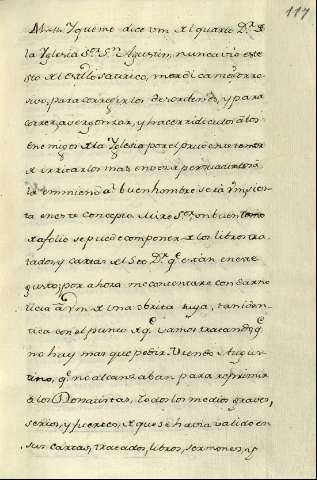 117
Mas: Y que me dice Vm. del quarto Dr. de
la Yglesia Sr. Sn. Agustin, nunca vio este
Sto. el estilo satirico, mordicante
sivo, para corregir los desordenes, y para
correr, avergonzar, y hacer ridiculos a los
enemigos de la Yglesia por el
de irritarlos mas en vez de persuadirlos
la enmienda al buen hombre será Vm.
ta en este concepto. Mire Sr. un buen tomo
de a folio se puede componer de los libros tra-
tados, y cartas del Sto. Dr. qe. están en este
gusto; por ahora me contentare con dar no
ticia a Vm. de una obrita suya, tan iden-
tica con el punto de qe. vamos tratando, qe.
no hay mas que pedir. Viendo Augus-
tino, qe. no alcanzaban para reprimir
a los Donatistas, todos los medios graves,
serios, y de que se havia valido en
sus cartas, tratados, libros, sermones, y